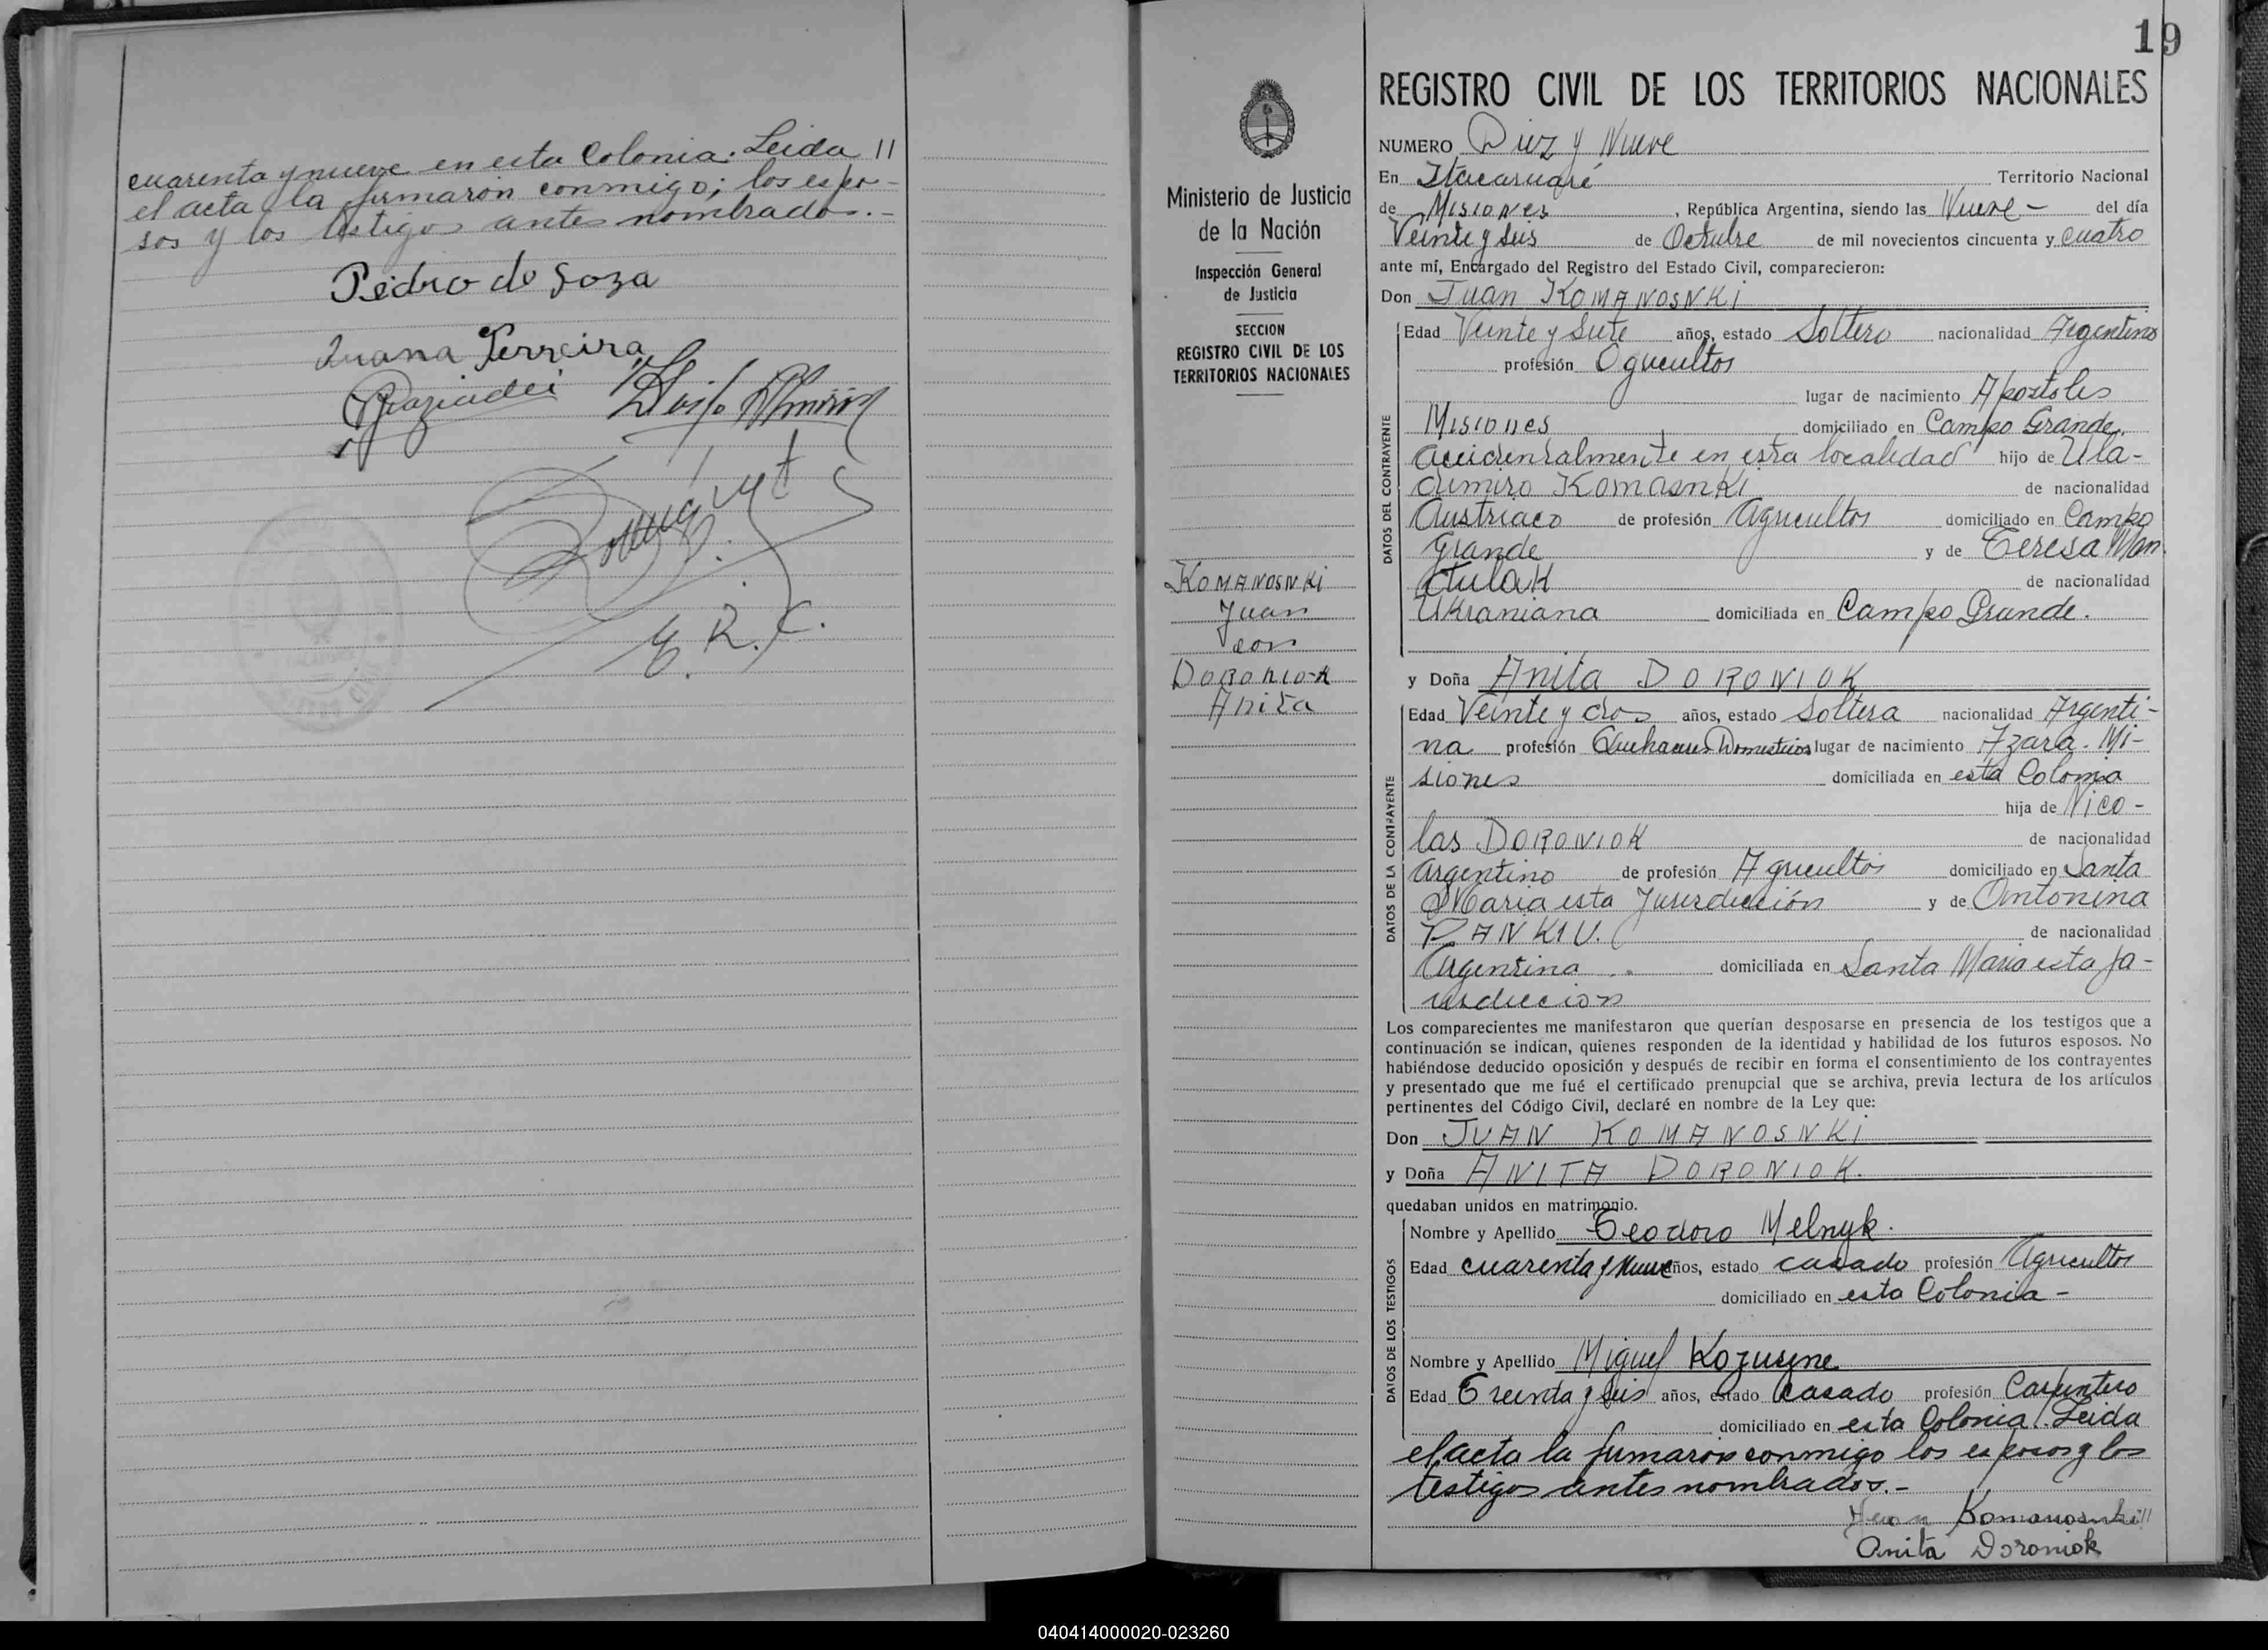 cuarenta y nueve en esta Colonia. Leida //
el acta la firmaron conmigo; los espo-
sos y los testigos antes nombrados.-
Pedro de Soza
Juana Ferreira
E. R. C.
19
REGISTRO CIVIL DE LOS TERRITORIOS NACIONALES
Ministerio de Justicia
de la Nación
Inspección General
de Justicia
SECCION
REGISTRO CIVIL DE LOS
TERRITORIOS NACIONALES
KOMANOSNKi
Juan
con
DORONIOK
Anita
NUMERO Diez y Nueve
En Itacaruaré Territorio Nacional
de Misiones, República Argentina, siendo las Nueve - del día
Veinte y seis de Octubre de mil novecientos cincuenta y cuatro
ante mí, Encargado del Registro del Estado Civil, comparecieron:
Don Juan KOMANOSNKi
DATOS DEL CONTRAYENTE
Edad Veinte y Siete años, estado Soltero nacionalidad Argentino
profesión Agricultor
lugar de nacimiento Apostoles
Misiones domiciliado en Campo Grande.
accidentalmente en esta localidad hijo de Ula-
dimiro Komasnki de nacionalidad
Austriaco de profesión Agricultor domiciliado en Campo
Grande y de Teresa Man
tulak de nacionalidad
Ukraniana domiciliada en Campo Grande.
y Doña Anita DORONIOK
DATOS DE LA CONTRAYENTE
Edad Veinte y dos años, estado Soltera nacionalidad Argenti-
na profesión Quehaceres Domesticos lugar de nacimiento Azara. Mi-
siones domiciliada en esta Colonia
hija de Nico-
las DORONIOK de nacionalidad
Argentino de profesión Agricultor domiciliado en Santa
Maria esta Jurisdicción y de Antonina
PANKIU. de nacionalidad
Argentina .. domiciliada en Santa Maria esta Ju-
risdiccion
Los comparecientes me manifestaron que querían desposarse en presencia de los testigos que a
continuación se indican, quienes responden de la identidad y habilidad de los futuros esposos. No
habiéndose deducido oposición y después de recibir en forma el consentimiento de los contrayentes
y presentado que me fué el certificado prenupcial que se archiva, previa lectura de los artículos
pertinentes del Código Civil, declaré en nombre de la Ley que:
Don JUAN KOMANOSNKi
y Doña ANITA DORONIOK.
quedaban unidos en matrimonio.
DATOS DE LOS TESTIGOS
Nombre y Apellido Teodoro Melnyk.
Edad cuarenta y nueve años, estado casado profesión Agricultor
domiciliado en esta Colonia -
Nombre y Apellido Miguel
Edad Treinta y seis años, estado casado profesión Carpintero
domiciliado en esta Colonia. Leida
el acta la firmaron conmigo los esposos y los
testigos antes nombrados.-
Juan Komanosnki //
Anita Doroniok
040414000020-023260